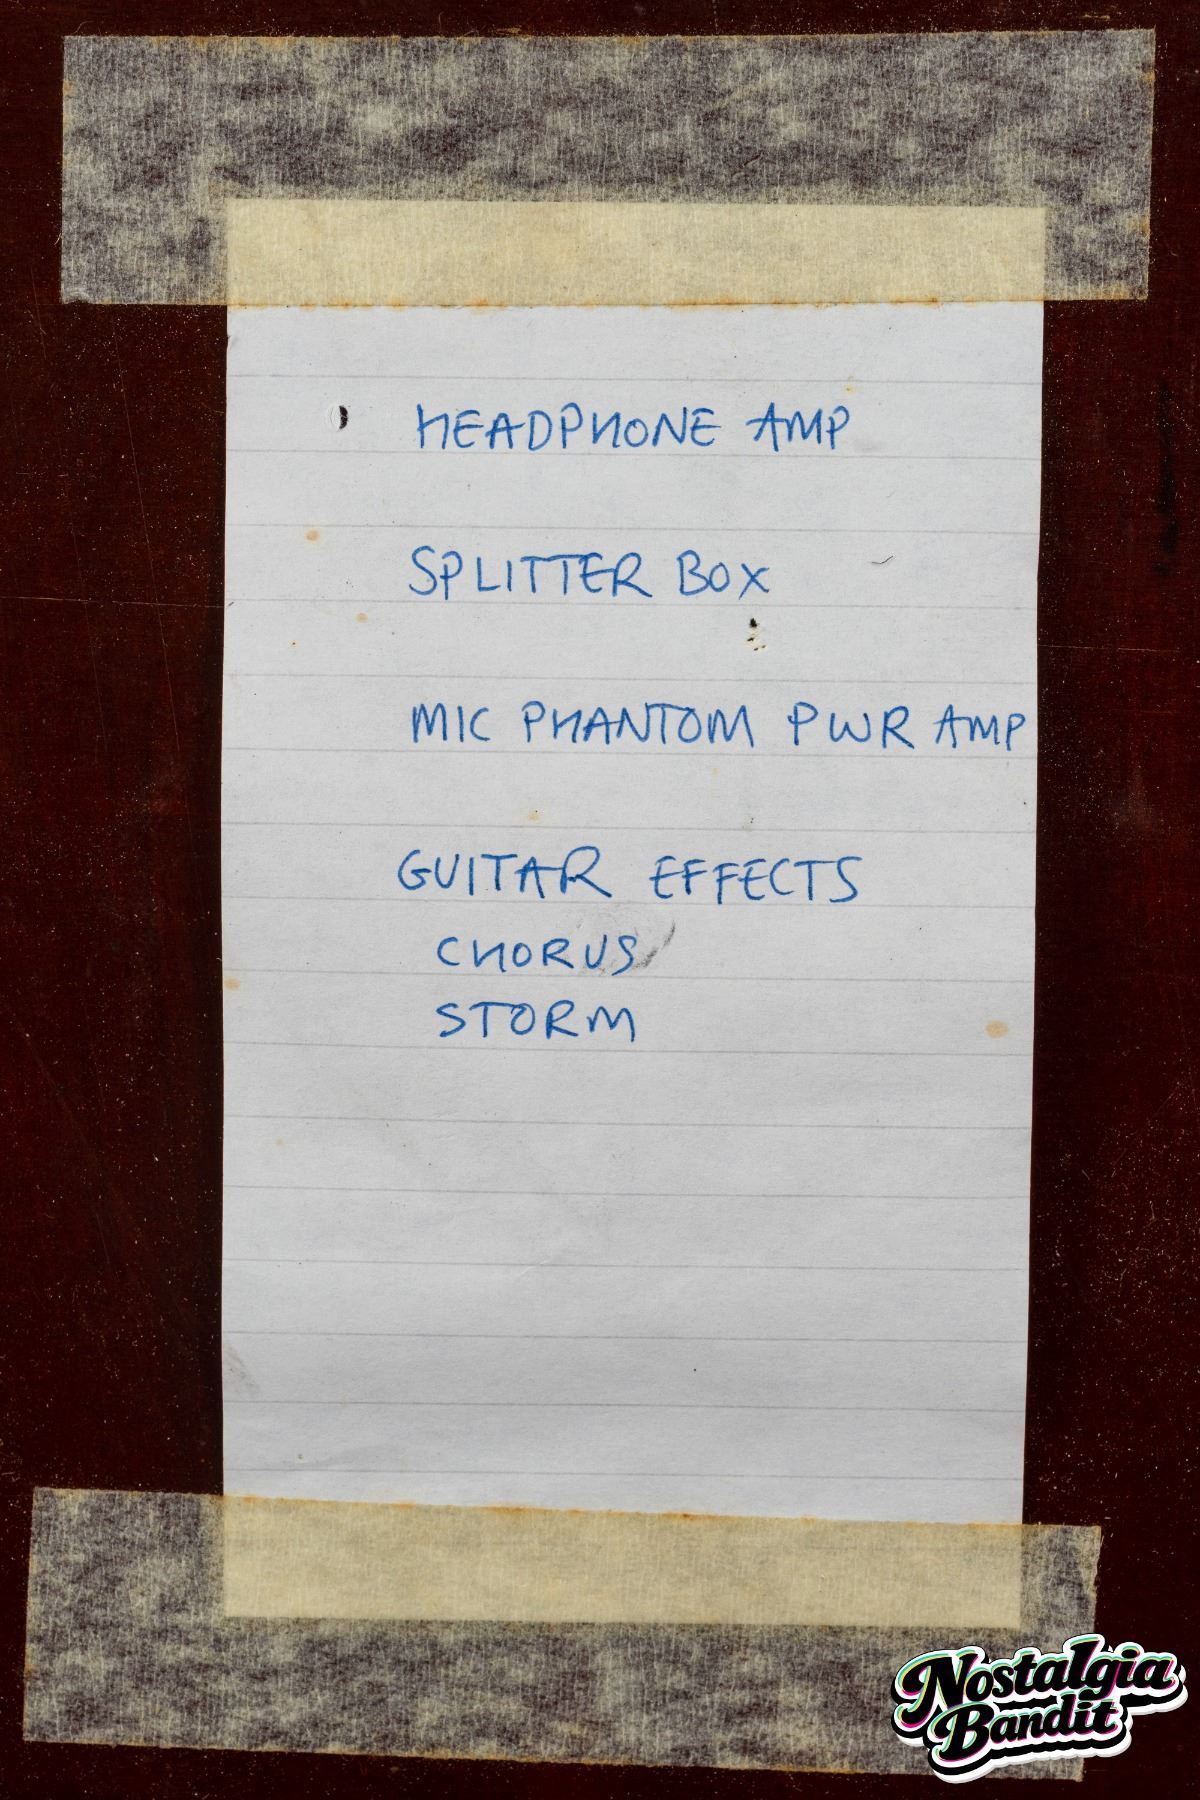 HEADPHONE AMP
SPLITTER BOX
MIC PHANTOM PWR AMP
GUITAR EFFECTS
CHORUS
STORM
Nostalgia
Bandit